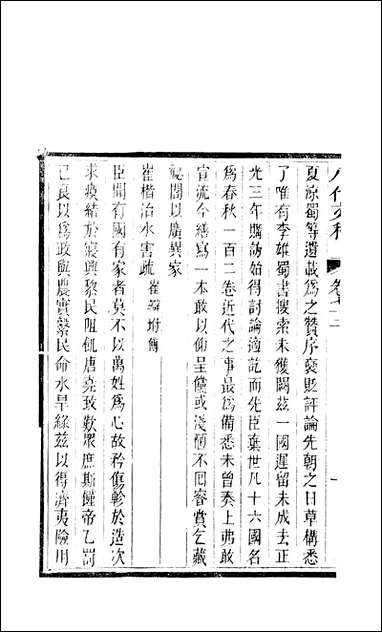 八代文粹
夏涼蜀等遺載爲之贊序褒貶評論先朝之日草構悉
了唯有李雄蜀書搜索未獲闕茲一國遲留未成去正
光三年購訪始得討論適訖而先臣棄世凡十六國名
爲春秋一百二卷近代之事最爲備悉未曾奏上弗敢
宣流今繕寫一本敢以仰呈儻或淺陋不回睿賞乞藏
祕閣以廣異家
崔楷治水害疏 崔辯附傳
臣聞有國有家者莫不以萬姓爲心故矜傷軫於造次
求瘼結於寢興黎民阻飢唐堯致歎眾庶斯饉帝乙罰
己良以爲政與農實繫民命水旱緣茲以得濟夷險用